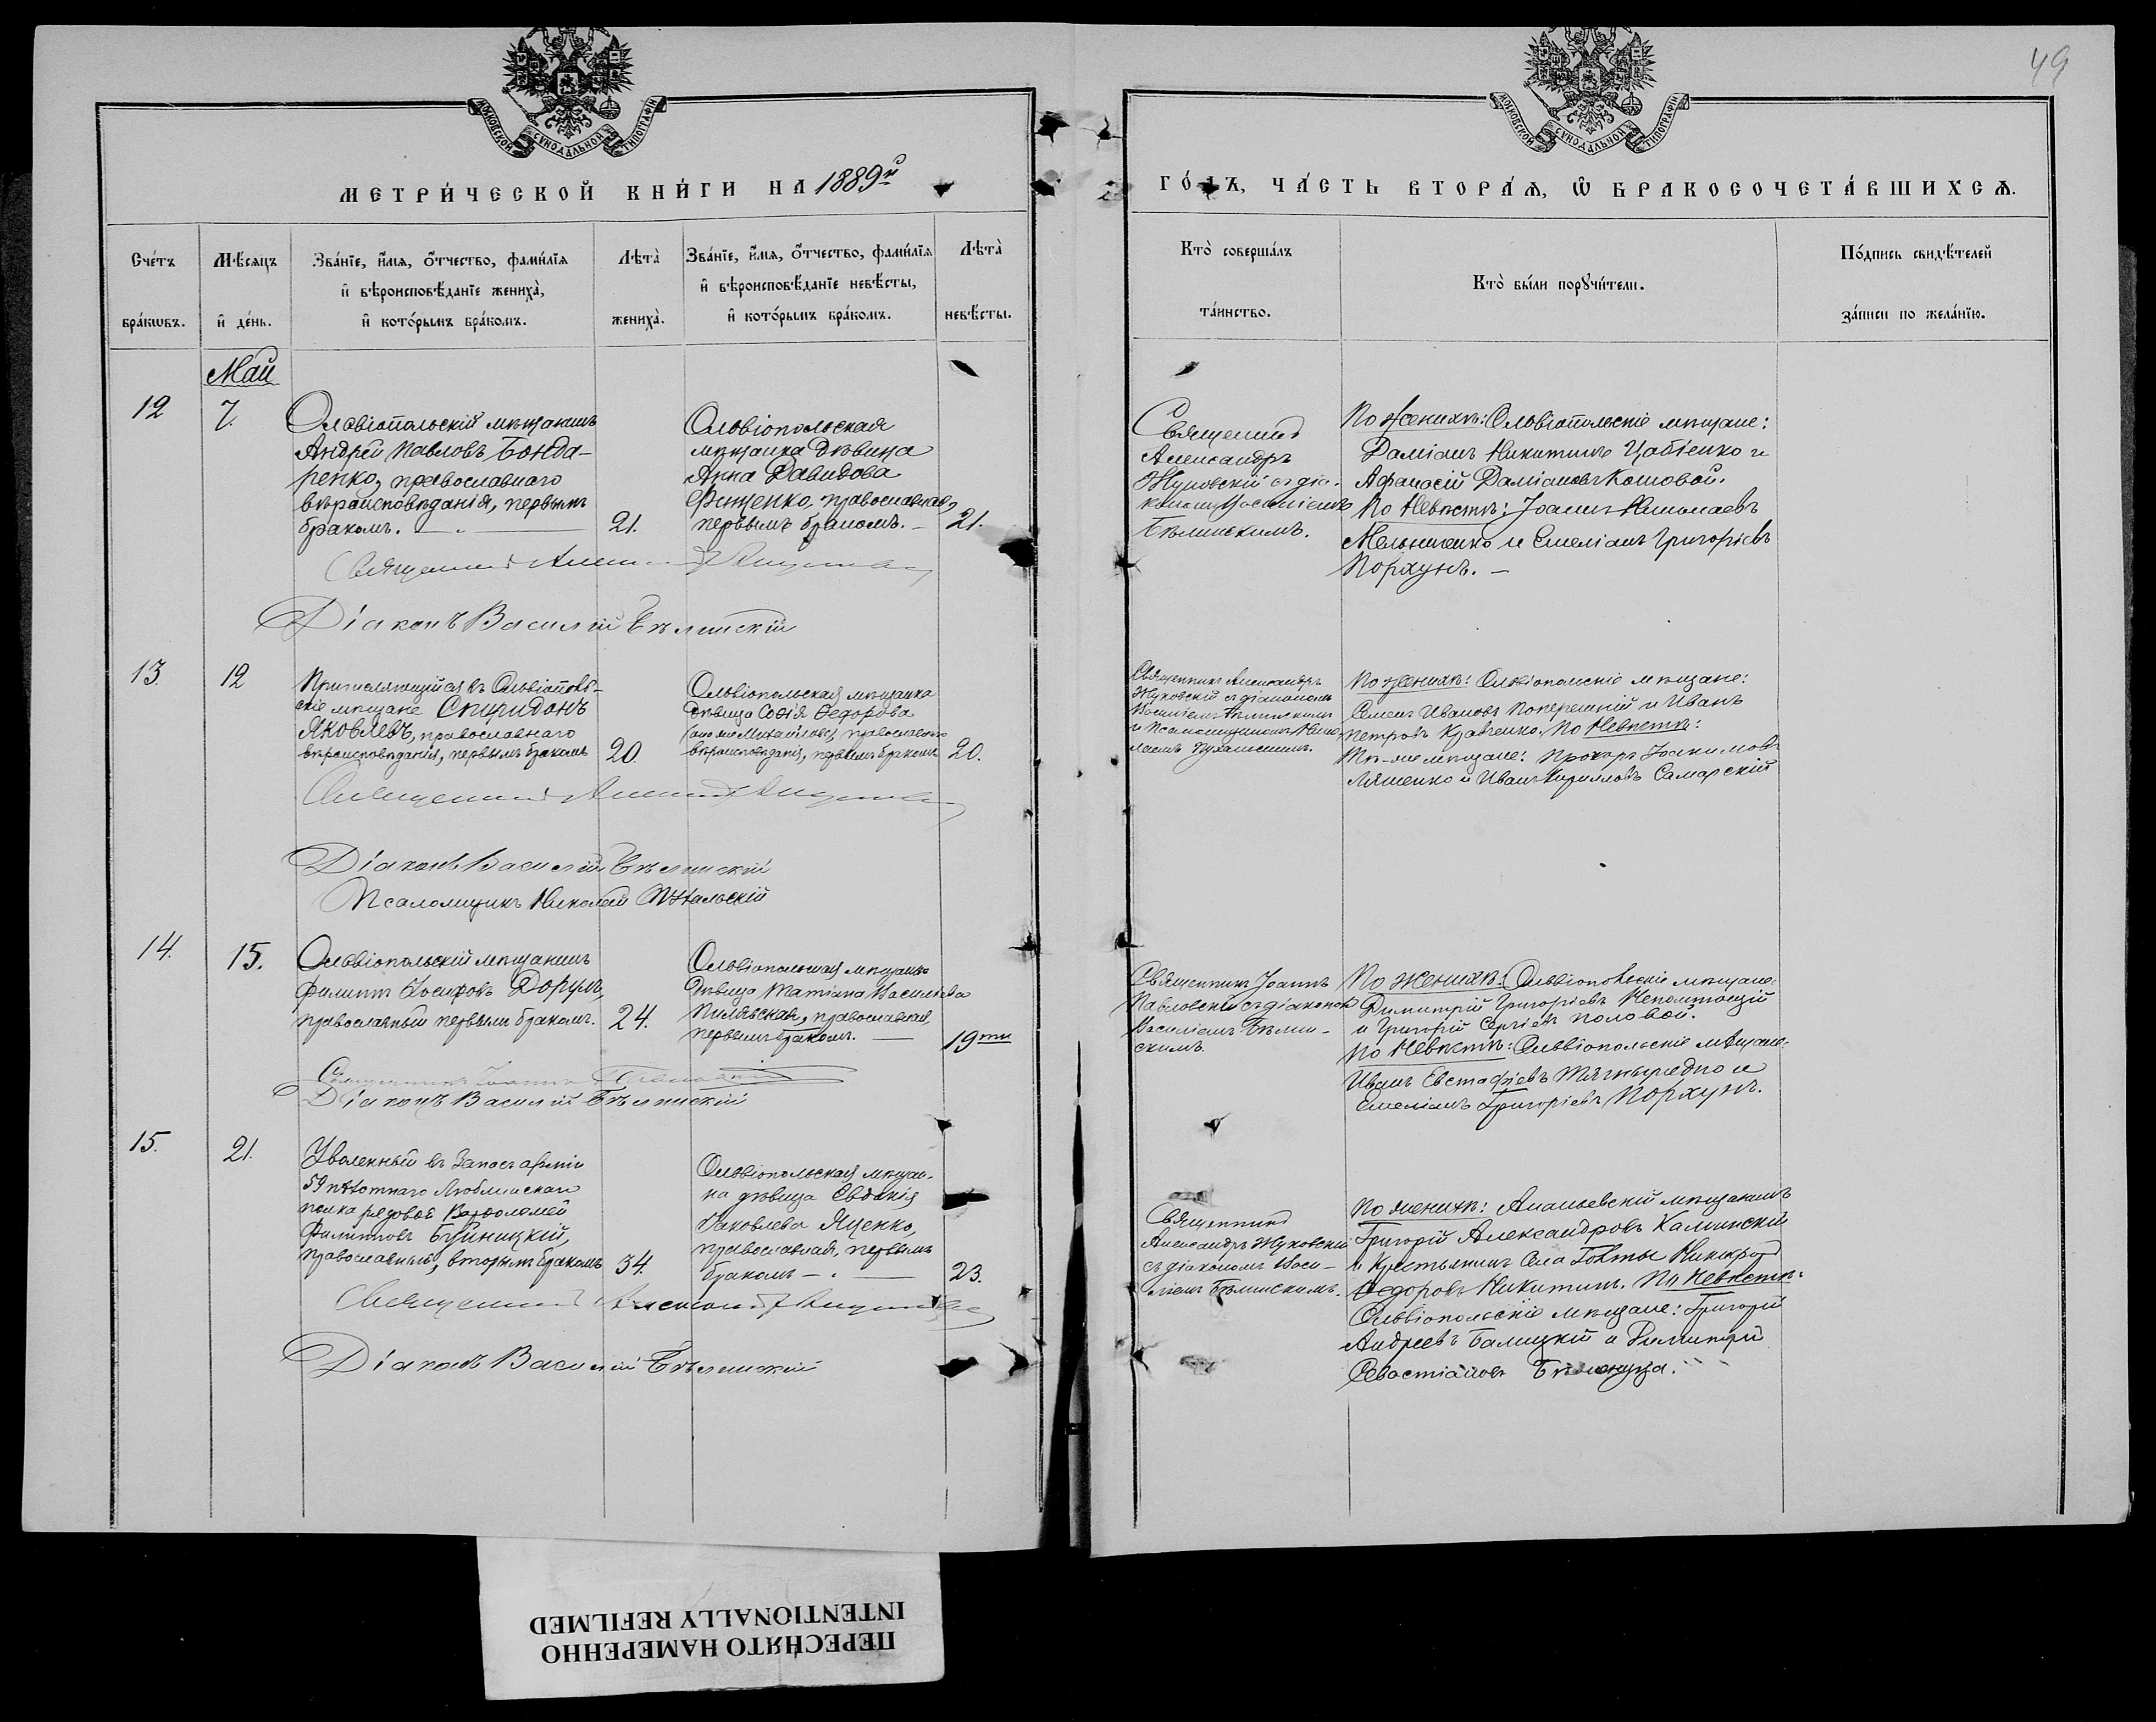 49
МОСКОВСКОЙ СѴНОДАЛЬНОЙ ТИПОГРАФІИ
МОСКОВСКОЙ СѴНОДАЛЬНОЙ ТИПОГРАФІИ
МЕТРИ́ЧЕСКОЙ КНИ́ГИ НА 1889й
ГО́ДЪ, ЧА́СТЬ ВТОРА́Ѧ, Ѡ҆ БРАКОСОЧЕТА́ВШИХСѦ.
Сче́тъ бра́кѡвъ.
Мѣ́сѧцъ и҆ де́нь.
Зва́нїе, и҆́мѧ, ѻ҆́тчество, фами́лїѧ
и҆ вѣроисповѣ́данїе жениха̀,
и҆ кото́рымъ бра́комъ.
Лѣта̀ жениха̀.
Зва́нїе, и҆́мѧ, ѻ҆́тчество, фами́лїѧ
и҆ вѣроисповѣ́данїе невѣ́сты,
и҆ кото́рымъ бра́комъ.
Лѣта̀ невѣ́сты.
Кто̀ соверша́лъ
та́инство.
Кто̀ бы́ли порꙋчи́тели.
По́дпись свидѣ́телей
за́писи по жела́нїю.
Май
12
7.
Ольвіопольскій мѣщанинъ
Андрей Павловъ Бонда-
ренко, православнаго
вѣроисповѣданія, первымъ
бракомъ.
21.
Ольвіопольская
мѣщанка дѣвица
Анна Давидова
Фещенко, православная,
первымъ бракомъ.
21.
Священникъ
Александръ
Жуковскій съ діа-
кономъ Василіемъ
Бѣлинскимъ.
По Женихѣ: Ольвіопольскіе мѣщане:
Даміанъ Никитинъ Цабіенко и
Афанасій Даміановъ Кошовой.
По Невѣстѣ: Іоаннъ Николаевъ
Мельниченко и Емеліанъ Григоріевъ
Порхунъ.
Священникъ Александръ Жуковскій
Діаконъ Василій Бѣлинскій
13.
12
Причисляющійся въ Ольвіополь-
скіе мѣщане Спиридонъ
Яковлевъ, православнаго
вѣроисповѣданія, первымъ бракомъ
20.
Ольвіопольская мѣщанка
дѣвица Софія Ѳедорова
православнаго
вѣроисповѣданія, первымъ бракомъ
20.
Священникъ Александръ
Жуковскій съ діакономъ
Василіемъ Бѣлинскимъ
и Псаломщикомъ Нико-
лаемъ
По женихѣ: Ольвіопольскіе мѣщане:
Семенъ Ивановъ Поперечній и Иванъ
Петровъ Кравченко. По Невѣстѣ:
Тѣ-же мѣщане: Прохоръ Іоакимовъ
Ляшенко и Иванъ Кириловъ Самарскій
Священникъ Александръ Жуковскій
Діаконъ Василій Бѣлинскій
Псаломщикъ Николай
14.
15.
Ольвіопольскій мѣщанинъ
Филиппъ Іосифовъ
православный первымъ бракомъ.
24.
Ольвіопольская мѣщанка
Дѣвица Татіана Васильева
Пилявская, православная,
первымъ бракомъ.
19ти
Священникъ Іоаннъ
Павловскій съ діакономъ
Василіемъ Бѣлин-
скимъ.
По женихѣ: Ольвіопольскіе мѣщане:
Димитрій Григоріевъ Непомнющій
и Григорій Сергіевъ Половой.
По Невѣстѣ: Ольвіопольскіе мѣщане:
Иванъ Евстафіевъ Тягнырядно и
Емеліанъ Григоріевъ Порхунъ.
Священникъ Іоаннъ Павловскій
Діаконъ Василій Бѣлинскій
15.
21.
Уволенный въ запасъ арміи
59 пѣхотнаго Люблинскаго
полка рядовой Варѳоломей
Филипповъ Буйницкій,
православный, вторымъ бракомъ
34.
Ольвіопольская мѣщан-
ка дѣвица Евдокія
Іаковлева Яценко,
православная, первымъ
бракомъ
23.
Священникъ
Александръ Жуковскій
съ діакономъ Васи-
ліемъ Бѣлинскимъ.
По женихѣ: Ананьевскій мѣщанинъ
Григорій Александровъ Калинскій
и Крестьянинъ Села Голты Никифоръ
Ѳедоровъ Никитинъ. По Невѣстѣ:
Ольвіопольскіе мѣщане: Григорій
Андреевъ Балицкій и Димитрій
Севастіановъ
Священникъ Александръ Жуковскій
Діаконъ Василій Бѣлинскій
ПЕРЕСНЯТО НАМЕРЕННО
INTENTIONALLY REFILMED